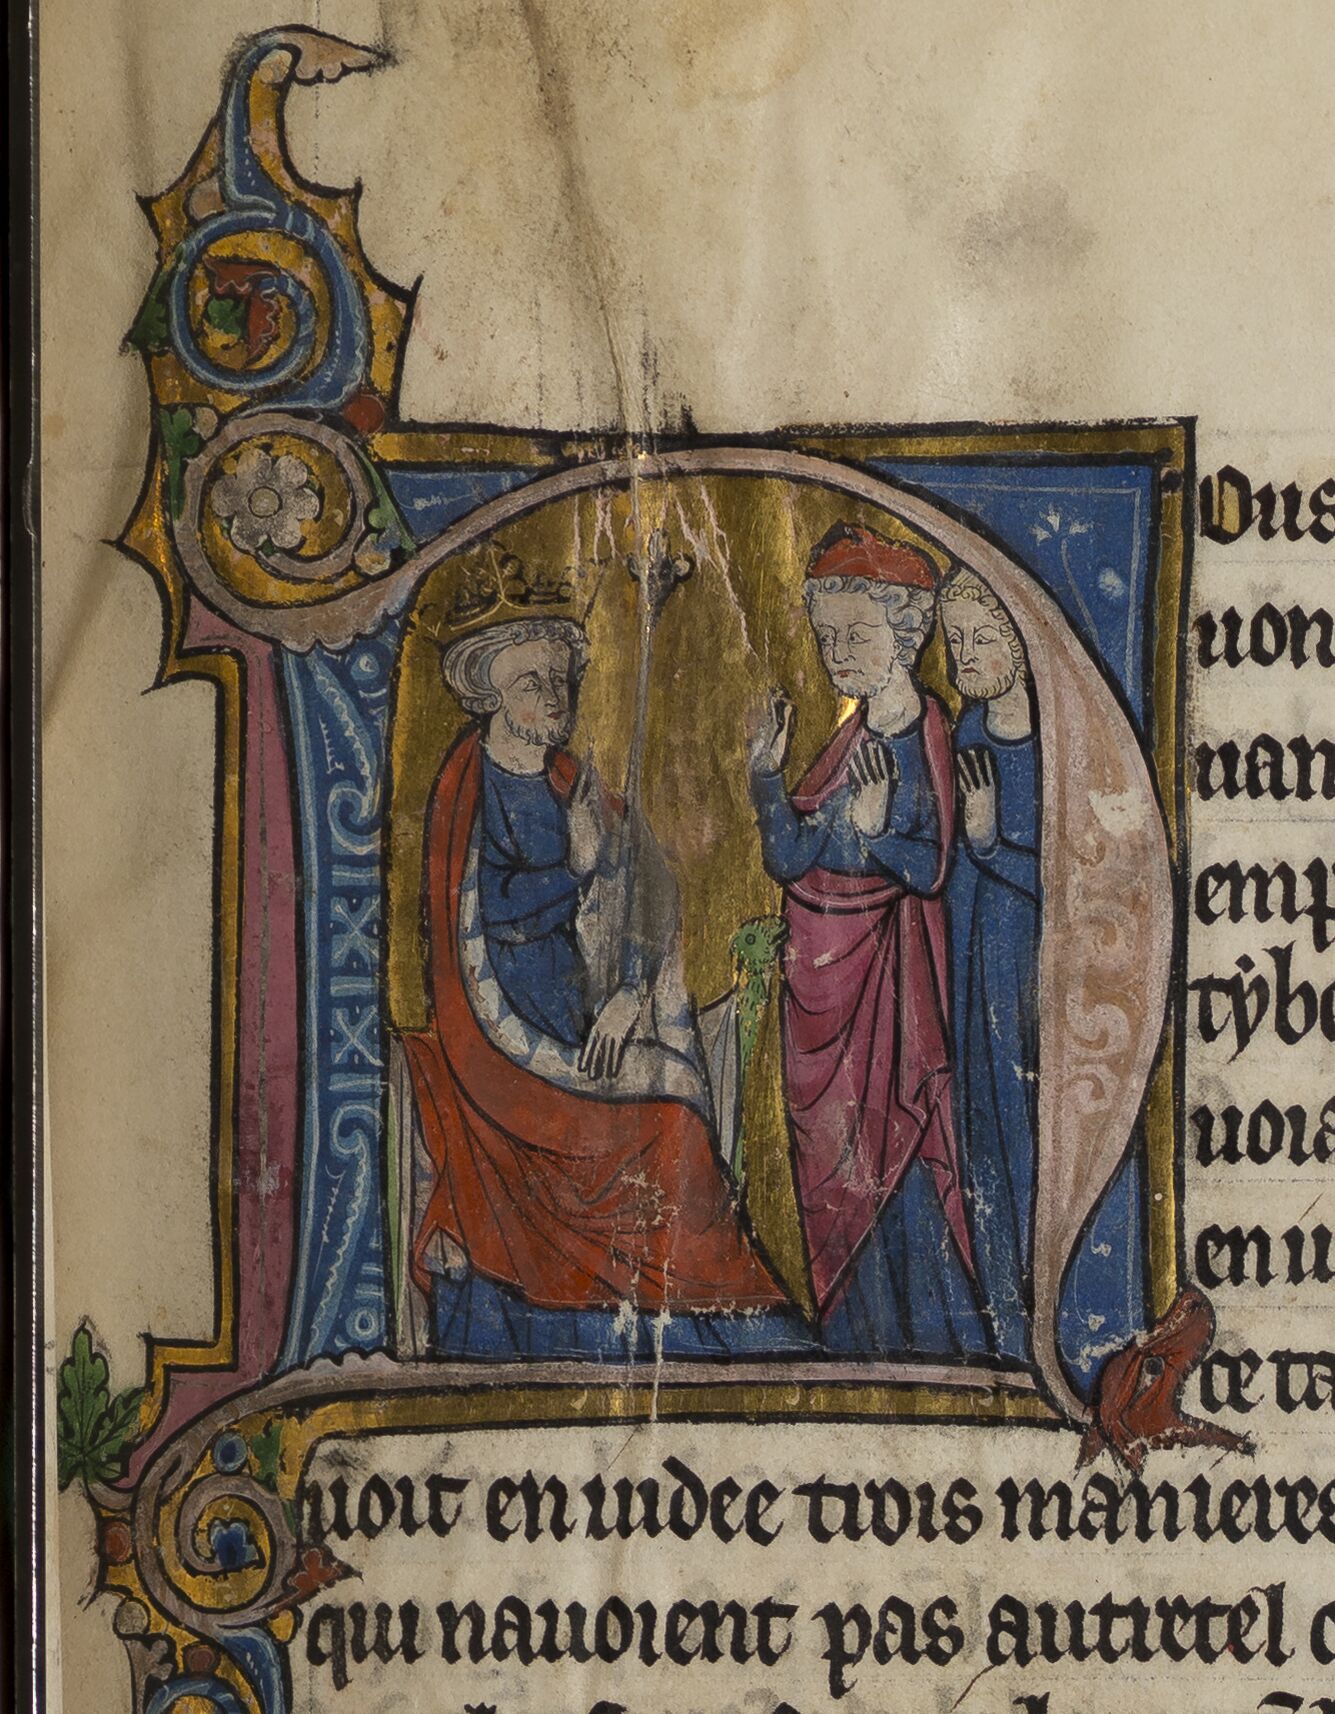 NOus
uon
uan
emp
tẏbe
uoia
en u
ce ta
uoit en iudee trois manieres
qui nauoient pas autretel c